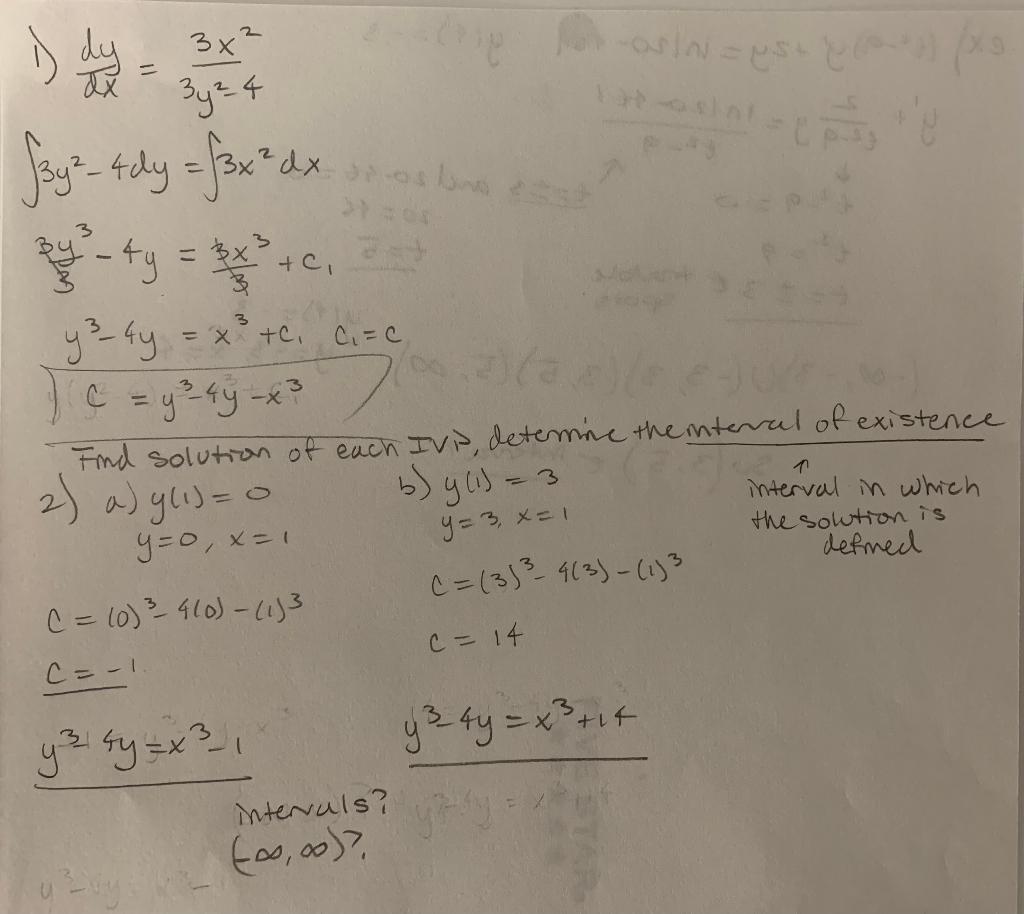 1) dy/dx = 3x²/(3y²-4)
∫3y²-4dy = ∫3x²dx
3y³/3 - 4y = 3x³/3 + C₁
y³-4y = x³+C₁ C₁=C
C = y³-4y-x³
Find solution of each IVP, determine the interval of existence
↑
interval in which
the solution is
defined
2) a) y(1) = 0
y=0, x=1
C = (0)³-4(0)-(1)³
C = -1
y³-4y=x³-1
b) y(1) = 3
y=3, x=1
C=(3)³-4(3)-(1)³
C = 14
y³-4y=x³+14
intervals?
(-∞,∞)?